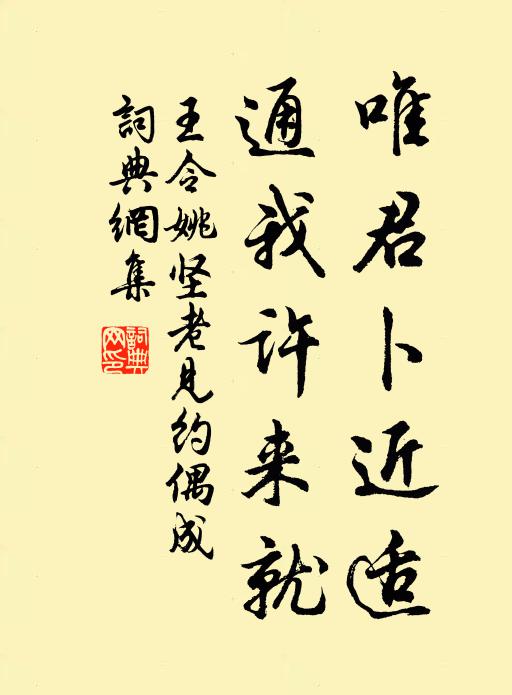 唯君卜近适
通我许来就
王令姚坚老见约偶成
词典網集
詞典網印